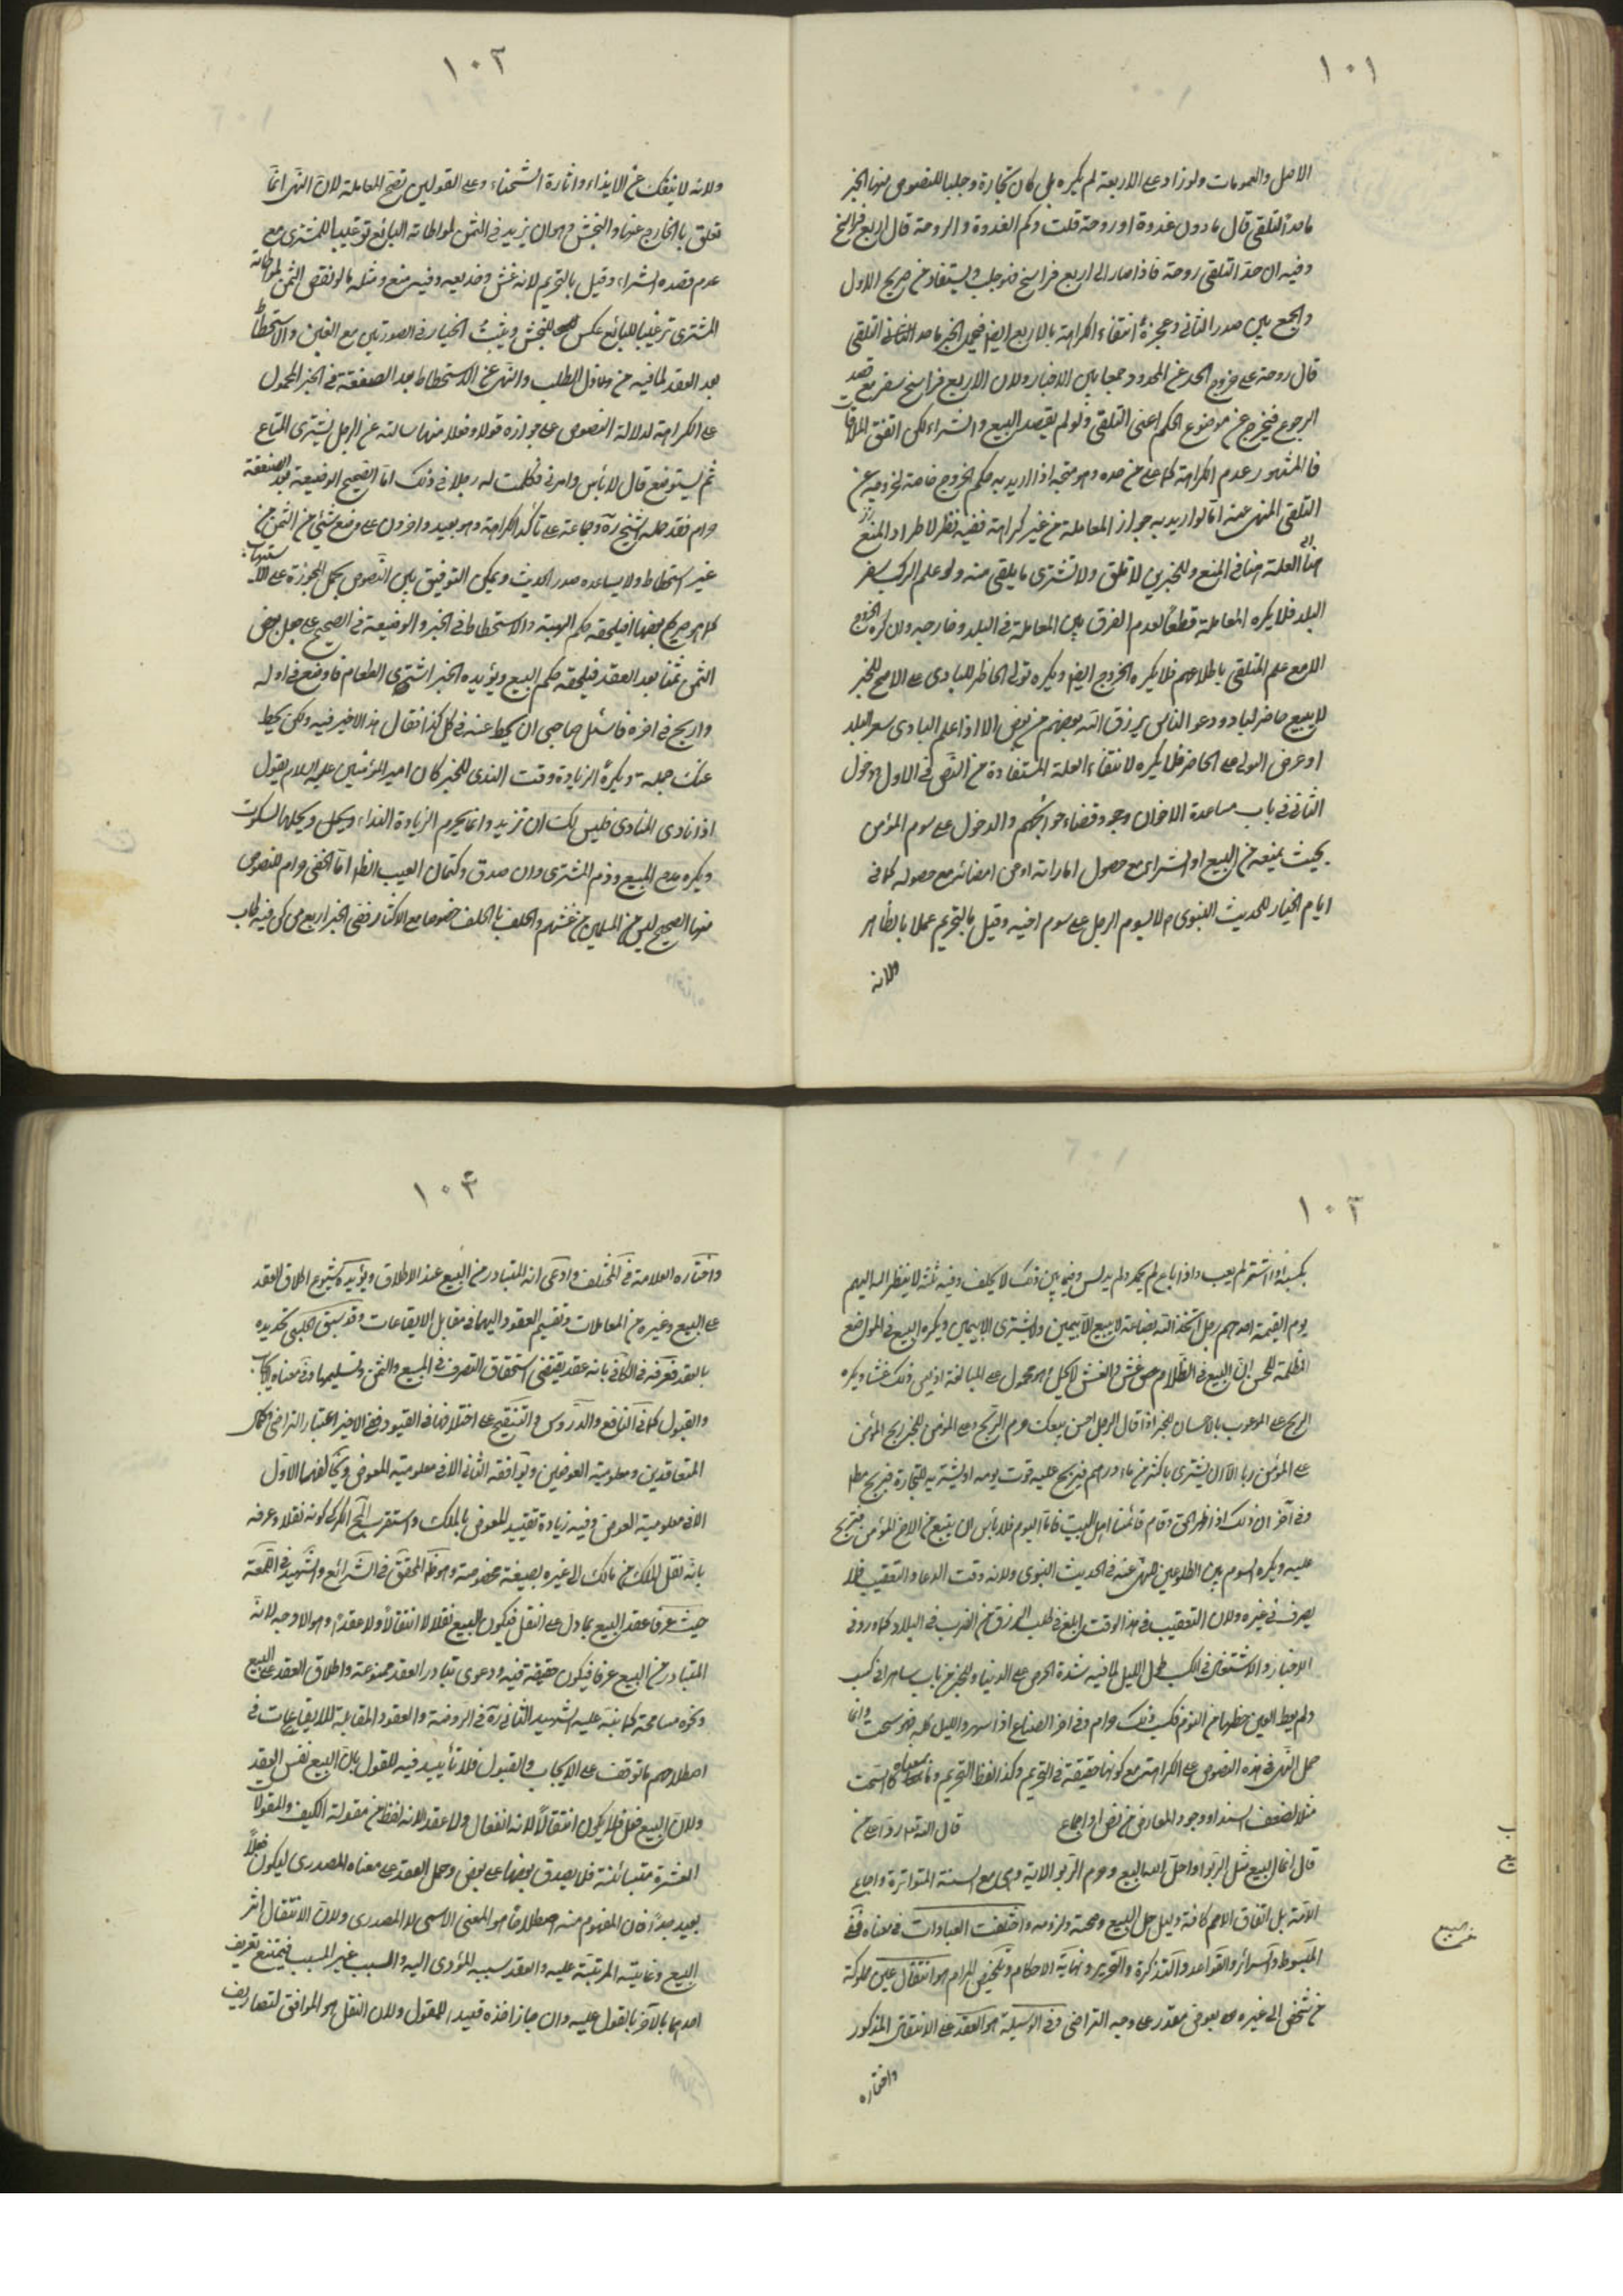 ١٠١
الاصل والعمومات ولو زاد على الاربعة لم يكره بل كان تجارة وجلبا للنصوص منها الخبر
ما حد التلقى قال ما دون غدوة او روحة قلت وكم الغدوة والروحة قال اربع فراسخ
وفيه ان حد التلقى روحة فاذا صار الى اربع فراسخ فهو جلب ويستفاد من صريح الاول
والجمع بين صدر الثانى وعجزه انتفاء الكراهة بالاربع ايضا فيحمل الخبر ما حد التلقى
قال روحة على خروج الحد عن المحدود جمعا بين الاخبار ولان الاربع فراسخ سفر مع قصد
الرجوع فيخرج عن موضوع الحكم اعنى التلقى ولو لم يقصد البيع والشراء لكن اتفق الملاقات
فالمشهور عدم الكراهة كما عن ضده وهو متجه اذا اريد به حكم الخروج خاصة لخروجه عن
التلقى المنهى عنه اما لو اريد به جواز المعاملة من غير كراهة ففيه نظر لاطراد المنع
العلة هنا فى المنع وللخبرين لا تلق ولا تشترى ما يلقى منه ولو علم الركب بسعر
البلد فلا يكره المعاملة قطعا لعدم الفرق بين المعاملة فى البلد وخارجه وان كره الخروج
الا مع علم المتلقى باطلاعهم فلا يكره الخروج ايضا ويكره تولى الحاضر للبادى على الاصح للخبر
لا يبيع حاضر لباد ودعوا الناس يرزق الله بعضهم من بعض الا اذا علم البادى سعر البلد
او عرض البولى على الحاضر فلا يكره لانتفاء العلة المستفادة من النص فى الاول ودخول
الثانى فى باب مساعدة الاخوان وجود قضاء حوائجكم والدخول على سوم المؤمن
بحيث يمنعه من البيع او الشراء مع حصول اماراته او من امضائه مع حصوله كما فى
ايام الخيار للحديث النبوى ص لا يسوم الرجل على سوم اخيه وقيل بالتحريم عملا بالظاهر
ولانه
١٠٢
ولانه لا ينفك عن الايذاء واثارة الشحناء وعلى القولين تصح المعاملة لان النهى انما
تعلق بالخارج عنها والنجش وهو ان يزيد فى الثمن لمواطاته البائع ترغيبا للمشترى مع
عدم قصده الشراء وقيل بالتحريم لانه غش وخديعه وفيه منع ومثله ما لو نقص الثمن لمواطاته
المشترى ترغيبا للبائع عكس النجش ويثبت الخيار فى الصورتين مع الغبن والاستحطاط
بعد العقد لما فيه من الطلب والنهى عن الاستحطاط بعد الصفقة فى الخبر المحمول
على الكراهة لدلالة النصوص على جوازه قولا وفعلا منها سالته عن الرجل يشترى المتاع
ثم يستوضع قال لا بأس وامرنى فكلمت له رجلا فى ذلك اما الصحيح الوضيعة بعد الصفقة
حرام فقد حمله الشيخ ره وجماعة على تأكد الكراهة وهو بعيد واخرون على وضع شئ من الثمن من
غير استحطاط ولا يساعده صدر الحديث ويمكن التوفيق بين النصوص بحمل المجوزة على الاستيهاب
كما هو صريح بعضها فيلحقه حكم الهبة والاستحطاط فى الخبر والوضيعة فى الصحيح على جعل بعض
الثمن ثمنا بعد العقد فيلحقه حكم البيع ويؤيده الخبر اشترى الطعام فاوضع فى اوله
واربح فى اخره فاسئل صاحبى ان يحط عنى فى كل كذا فقال هذا لا خير فيه ولكن يحط
عنك جملة ويكره الزيادة وقت الندى للخبر كان امير المؤمنين عليه السلام يقول
اذا نادى المنادى فليس لك ان تزيد وانما يحرم الزيادة النداء ويحلها السكوت
ويكره مدح المبيع وذم المشترى وان صدق وكتمان العيب الظاهر اما الخفى حرام للنصوص
منها الصحيح ليس من المسلمين من غشهم والحلف بالحلف خصوصا مع الاكثار ففى الخبر اربع من كن فيه طاب
١٠٣
مكسبه اذا اشترى لم يعب واذا باع لم يحمد ولم يدلس وفيما بين ذلك لا يحلف وفيه ثلثة لا ينظر الله اليهم
يوم القيمة احدهم رجل اتخذ الله بضاعة لا يبيع الا بيمين ولا يشترى الا بيمين ويكره البيع فى المواضع
المظلمة للحسن ان البيع فى الظلام غش والغش لا يحل وهو محمول على المبالغة اذ ليس ذلك غشا ويكره
الربح على الموعوب بالاحسان للخبر اذا قال الرجل احسن بيعك حرم الربح وعلى المؤمن للخبر ربح المؤمن
على المؤمن ربا الا ان يشترى باكثر من مائة درهم فيربح عليه قوت يومه او يشتريه للتجارة فيربح
وفى آخر ان ذلك اذا ظهر الحق وقام قائمنا اهل البيت فاما اليوم فلا بأس ان يبيع من الاخ المؤمن ويربح
عليه ويكره السوم بين الطلوعين للنهى عنه فى الحديث النبوى ولانه وقت الدعا والتعقيب فلا
يصرف فى غيره ولان التعقيب فى هذا الوقت ابلغ فى طلب الرزق من الضرب فى البلاد كما ورد فى
الاخبار والاشتغال فى الكسب طول الليل لما فيه شدة الحرص على الدنيا وللخبر من بات ساهرا فى كسب
ولم يعط العين حظها من النوم فكسبه ذلك حرام وفى اخر الصناع اذا سهروا الليل كله فهو سحت وانما
حمل النهى فى هذه النصوص على الكراهة مع كونها حقيقة فى التحريم وكذا لفظ التحريم وما بمعناه كالسحت
مثلا لضعف السند او وجود المعارض من نص او اجماع قال الله تعالى
قال انما البيع مثل الربوا واحل الله البيع وحرم الربوا الاية وهى مع السنة المتواترة واجماع
الامة بل اتفاق الامم كافة دليل حل البيع وصحته ولزومه واختلفت العبارات فى معناه ففى
المبسوط والسرائر والقواعد والتذكرة والتحرير ونهاية الاحكام وتلخيص المرام هو انتقال عين مملوكة
من شخص الى غيره بعوض مقدر على وجه التراضى وفى الوسيلة هو العقد على الانتقال المذكور
واختاره
١٠٤
واختاره العلامة فى المختلف وادعى انه المتبادر من البيع عند الاطلاق ويؤيده شيوع اطلاق العقد
على البيع وغيره من المعاملات وتقسيم العقود اليهما فى مقابل الايقاعات وقد سبق الحلبى تحديده
بالعقد فعرفه فى الكافى بانه عقد يقتضى استحقاق التصرف فى المبيع والثمن وتسليمها وفى معناه الايجاب
والقبول كما فى النافع والدروس والتنقيح على اختلافها فى القيود ففى الاخير اعتبار التراضى وكمال
المتعاقدين ومعلومية العوضين ويوافقه الثانى الا فى معلومية المعوض ويخالفهما الاول
الا فى معلومية العوض وفيه زيادة تقييد المعوض بالملك واستقرب الكركى كونه نقلا وعرفه
بانه نقل الملك من مالك الى غيره بصيغة مخصوصة وهو ظاهر المحقق فى الشرائع والشهيد فى اللمعة
حيث عرفا عقد البيع بما دل على النقل فيكون البيع نقلا لا انتقالا ولا عقدا وهو الاوجه لانه
المتبادر من البيع عرفا فيكون حقيقة فيه ودعوى تبادر العقد ممنوعة واطلاق العقد على البيع
ونحوه مسامحة كما نبه عليه الشهيد الثانى ره فى الروضة والعقود المقابلة للايقاعات فى
اصطلاحهم ما توقفت على الايجاب والقبول فلا تأييد فيه للقول بان البيع نفس العقد
ولان البيع فعل فلا يكون انتقالا لانه انفعال ولا عقد لانه لفظ من مقولة الكيف والمقولات
العشرة متبائنة فلا يصدق بعضها على بعض وحمل العقد على معناه المصدرى ليكون فعلا
بعيد جدا فان المفهوم منه اصطلاحا هو المعنى الاسمى لا المصدرى ولان الانتقال اثر
البيع وغايته المرتبة عليه والعقد سببه المؤدى اليه والسبب غير المسبب فيمتنع تعريف
احدهما بالآخر بالقول عليه وان جاز اخذه قيدا للمقول ولان النقل هو الموافق لتصاريف